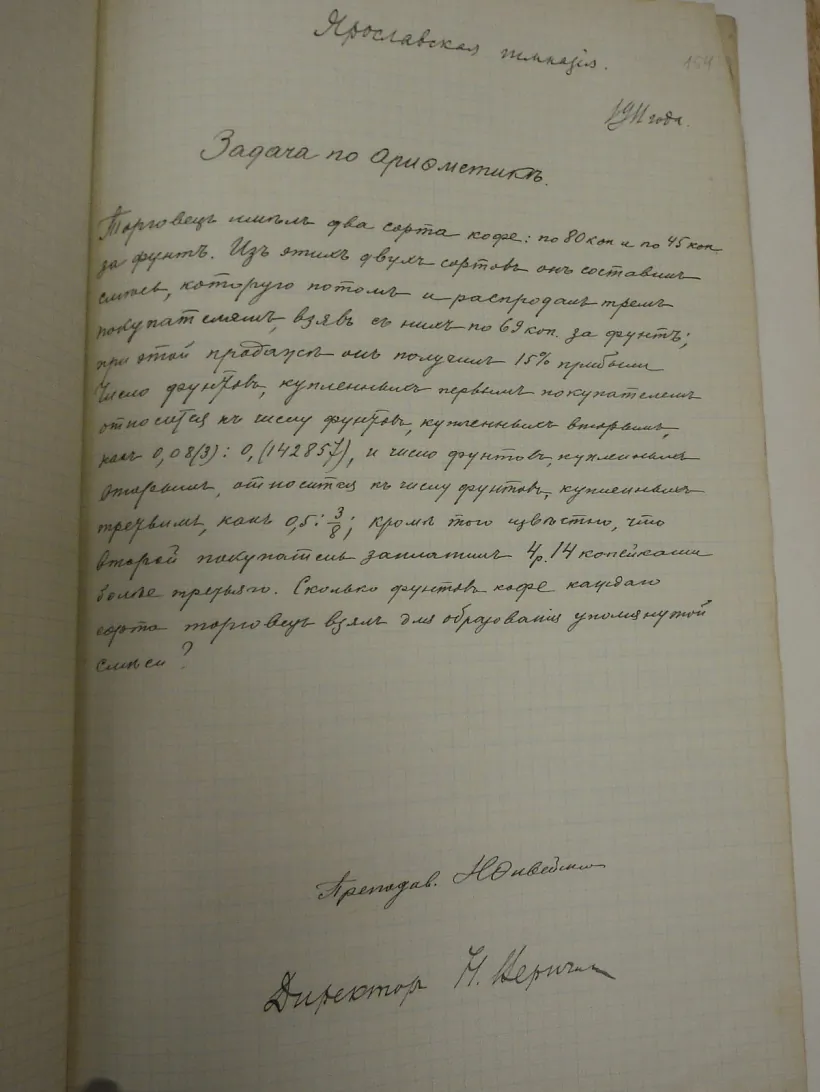 Ярославская гимназія.
154
1911 года.
Задача по ариѳметикѣ.
Торговецъ имѣлъ два сорта кофе: по 80 коп и по 45 коп.
за фунтъ. Изъ этихъ двухъ сортовъ онъ составилъ
смѣсь, которую потомъ и распродалъ тремъ
покупателямъ, взявъ съ нихъ по 69 коп. за фунтъ;
при этой продажѣ онъ получилъ 15% прибыли
Число фунтовъ, купленныхъ первымъ покупателемъ
относится къ числу фунтовъ, купленныхъ вторымъ,
какъ 0,08(3) : 0,(142857), и число фунтовъ, купленныхъ
вторымъ, относится къ числу фунтовъ, купленныхъ
третьимъ, какъ 0,5 : 3/8; кромѣ того извѣстно, что
второй покупатель заплатилъ 4р. 14 копейками
болѣе третьяго. Сколько фунтовъ кофе каждаго
сорта торговецъ взялъ для образованія упомянутой
смѣси?
Преподав. Н
Директоръ Н.